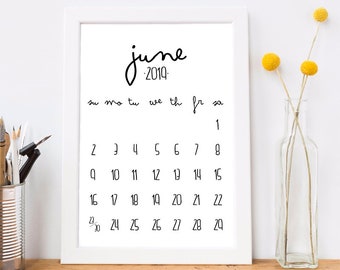 june
·2019·
su mo tu we th fr sa
1
2 3 4 5 6 7 8
9 10 11 12 13 14 15
16 17 18 19 20 21 22
23/30 24 25 26 27 28 29